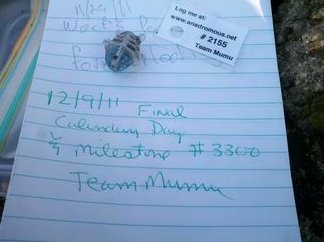 Log me at:
www.anadromous.net
# 2155
Team Mumu
12/9/11 Final
Calendar Day
& Milestone # 3300
Team Mumu